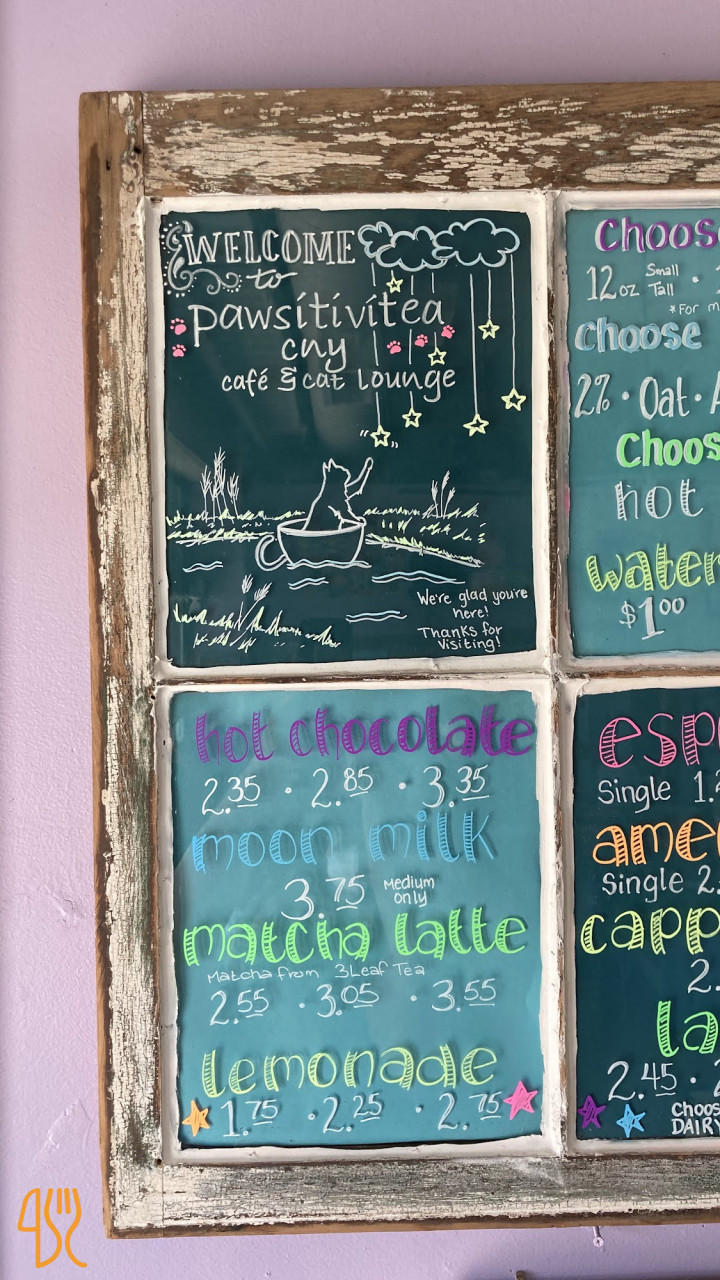 WELCOME
to
pawsitivitea
cny
café & cat lounge
We're glad you're
here!
Thanks for
visiting!
hot chocolate
2.35 · 2.85 · 3.35
moon milk
3.75 Medium
only
matcha latte
Matcha from 3 Leaf Tea
2.55 · 3.05 · 3.55
lemonade
1.75 · 2.25 · 2.75
12 oz Small
Tall
*For
choose
2% · Oat ·
hot
water
$1.00
Single
Single
2.45 ·
DAIRY